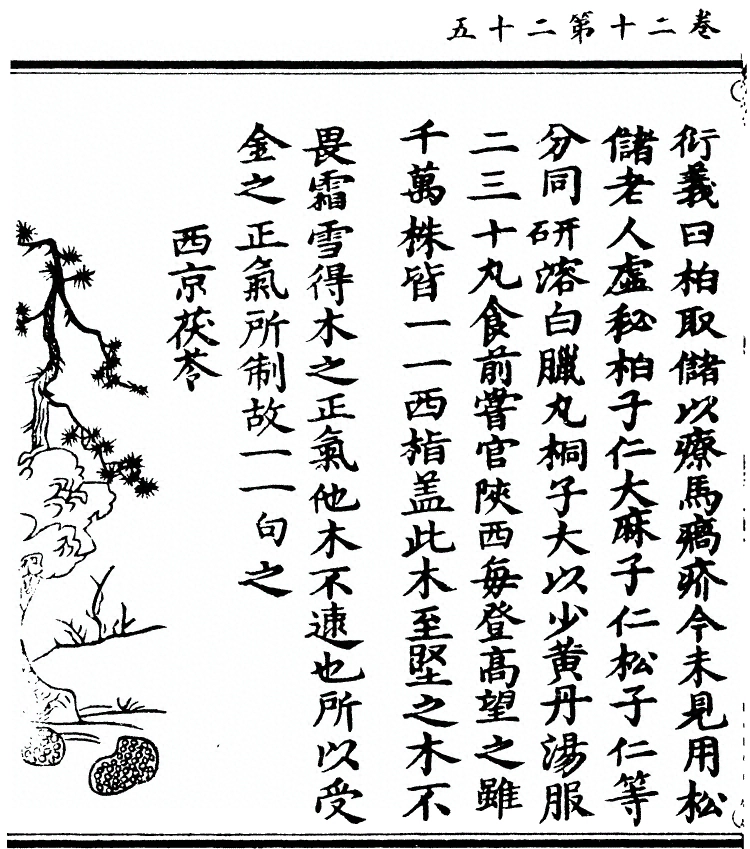 卷二十第二十五
衍義曰柏取儲以療馬瘑疥今未見用松
儲老人虛秘柏子仁大麻子仁松子仁等
分同研溶白臘丸桐子大以少黃丹湯服
二三十丸食前嘗官陝西每登高望之雖
千萬株皆一一西指盖此木至堅之木不
畏霜雪得木之正氣他木不逮也所以受
金之正氣所制故一一向之
西京茯苓